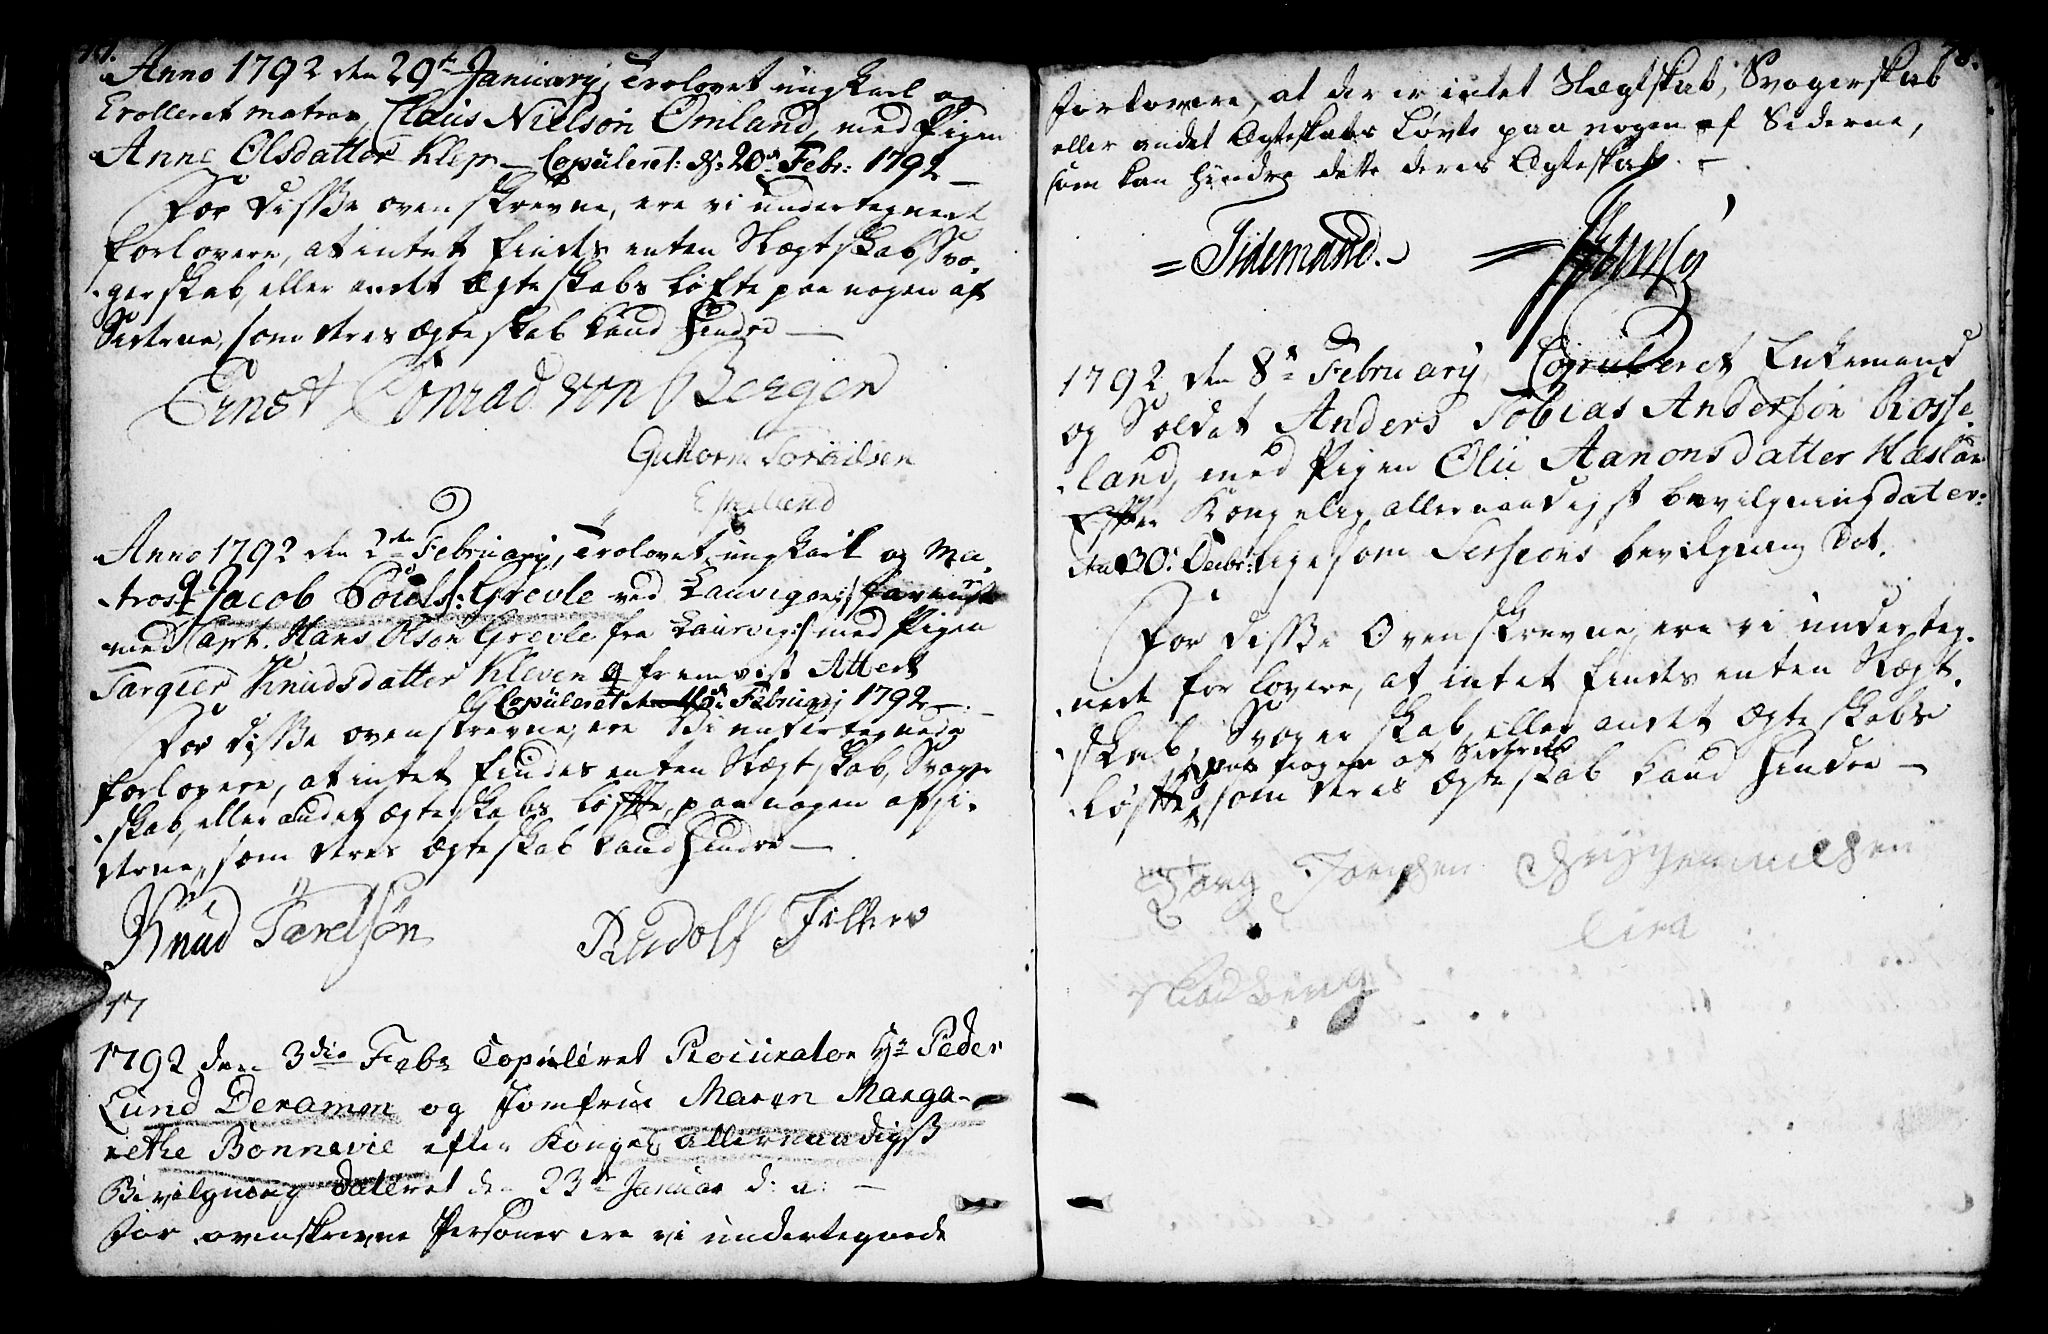 77.
Anno 1792 den 29de Januarij, Trolovet ung karl og
Enrolleret matros, Claus Nielsøn Omland, med Pigen
Anne Olsdatter Klep — Copuleret: d: 20de Febr: 1792 —
For disse ovenskrevne, ere vi undertegnede
forlovere, at intet findes enten Slægtskab, Svo-
gerskab, eller andet Ægteskabs Løfte paa nogen af
Siderne, som deres Ægteskab kand hindre —
Ernst Conrad von Bergen
Guttorm
Anno 1792 den 2den Februarij, Trolovet ung karl og Ma-
tros Jacob Grevle ved Laurvigen
med Capt. Hans Olsøn Grevle fra Laurvig :/ med Pigen
Targier Knudsdatter Kleven fremvist Attest
Copuleret Februarij 1792 —
For disse ovenskrevne, ere vi undertegnede
forlovere, at intet findes enten Slægtskab, Svoger-
skab, eller andet Ægteskabs Løfte, paa nogen af Si-
derne, som deres Ægteskab kand hindre —
Knud Tarelsøn Rudolf
17
1792 den 3die Febr Copuleret Procurator Hr Peder
Lund Deramon og Jomfrue Maren Marga-
rethe Bonnevie efter Konges allernaadigst
Bevilgning dateret den 23de Januar d: a: —
For ovenskrevne Personer ere vi undertegnede
78.
forlovere, at der er intet Slægtskab, Svogerskab
eller andet Ægteskabs Løvte paa nogen af Siderne,
som kan hindre dette deres Ægteskab. —
= Tidemand. =
1792 den 8de Februarij Copuleret Enkemand
og Soldat Anders Tobias Andersøn Rosse-
land, med Pigen Olii Aanonsdatter
Efter Kongelig allernaadigst bevilgning dater:
den 30. Decbr: ligesom Sessions bevilgning Dat.
For disse Ovenskrevne, ere vi underteg-
nede forlovere, at intet findes enten Slægt-
skab, Svogerskab, eller andet Ægteskabs
paa nogen af Siderne
Løfte, som deres Ægteskab kand hindre —